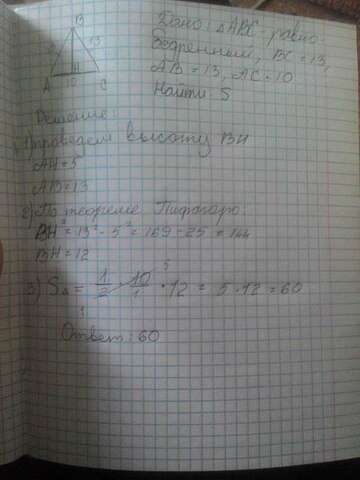 B
Дано: △ABC - равно-
бедренный, BC = 13,
13
AB = 13, AC = 10
A H C
10
Найти: S
Решение:
1) Проведем высоту BH
AH = 5
AB = 13
2) По теореме Пифагора:
BH² = 13² - 5² = 169 - 25 = 144
BH = 12
3) S△ = 1/2 · 10/1 · 12 = 5 · 12 = 60
Ответ: 60